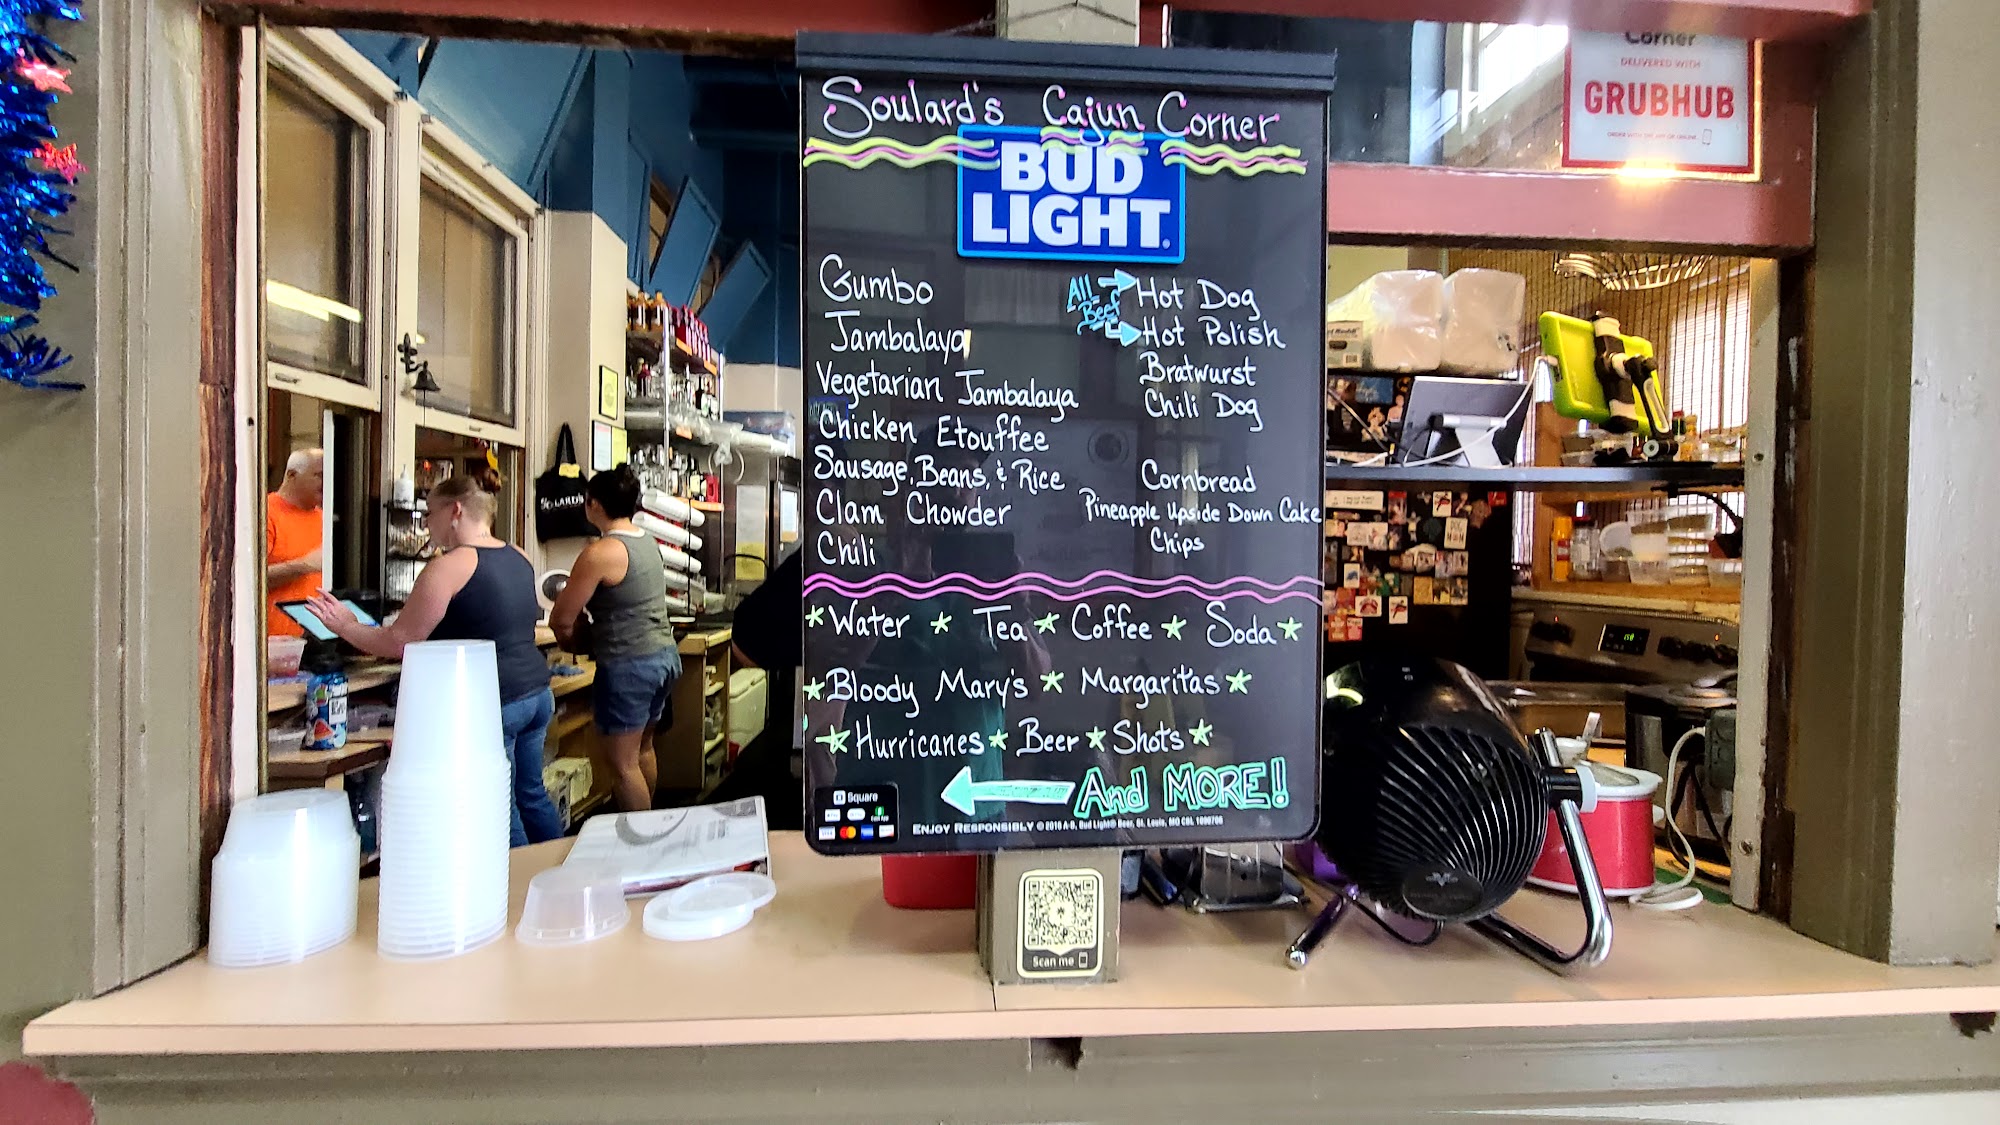 Soulard's Cajun Corner
BUD
LIGHT
Gumbo
Jambalaya
Vegetarian Jambalaya
Chicken Etouffee
Sausage, Beans, & Rice
Clam Chowder
Chili
All
Beef
Hot Dog
Hot Polish
Bratwurst
Chili Dog
Cornbread
Pineapple Upside Down Cake
Chips
Water Tea Coffee Soda
Bloody Mary's Margarita's
Hurricanes Beer Shots
And MORE!
Square
ENJOY RESPONSIBLY © 2016 A-B, Bud Light® Beer, St. Louis, MO
Scan me
Corner
DELIVERED WITH
GRUBHUB
SOULARD'S